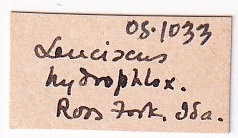 OS.1033
Leuciscus
hydrophlox.
Ross Fork, Ida.